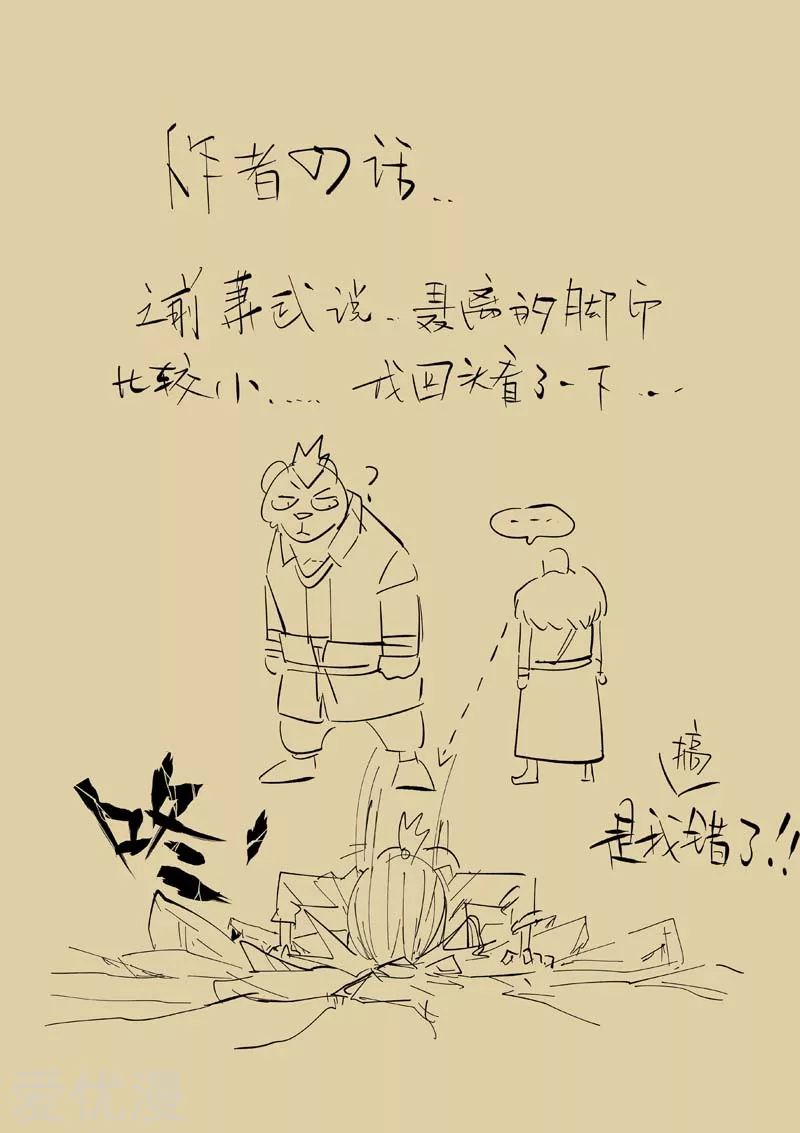 作者の话..
之前慕武说..聂离的脚印
比较小..... 我回头看了一下...
?
....
搞
是我错了!!
咚!
爱优漫